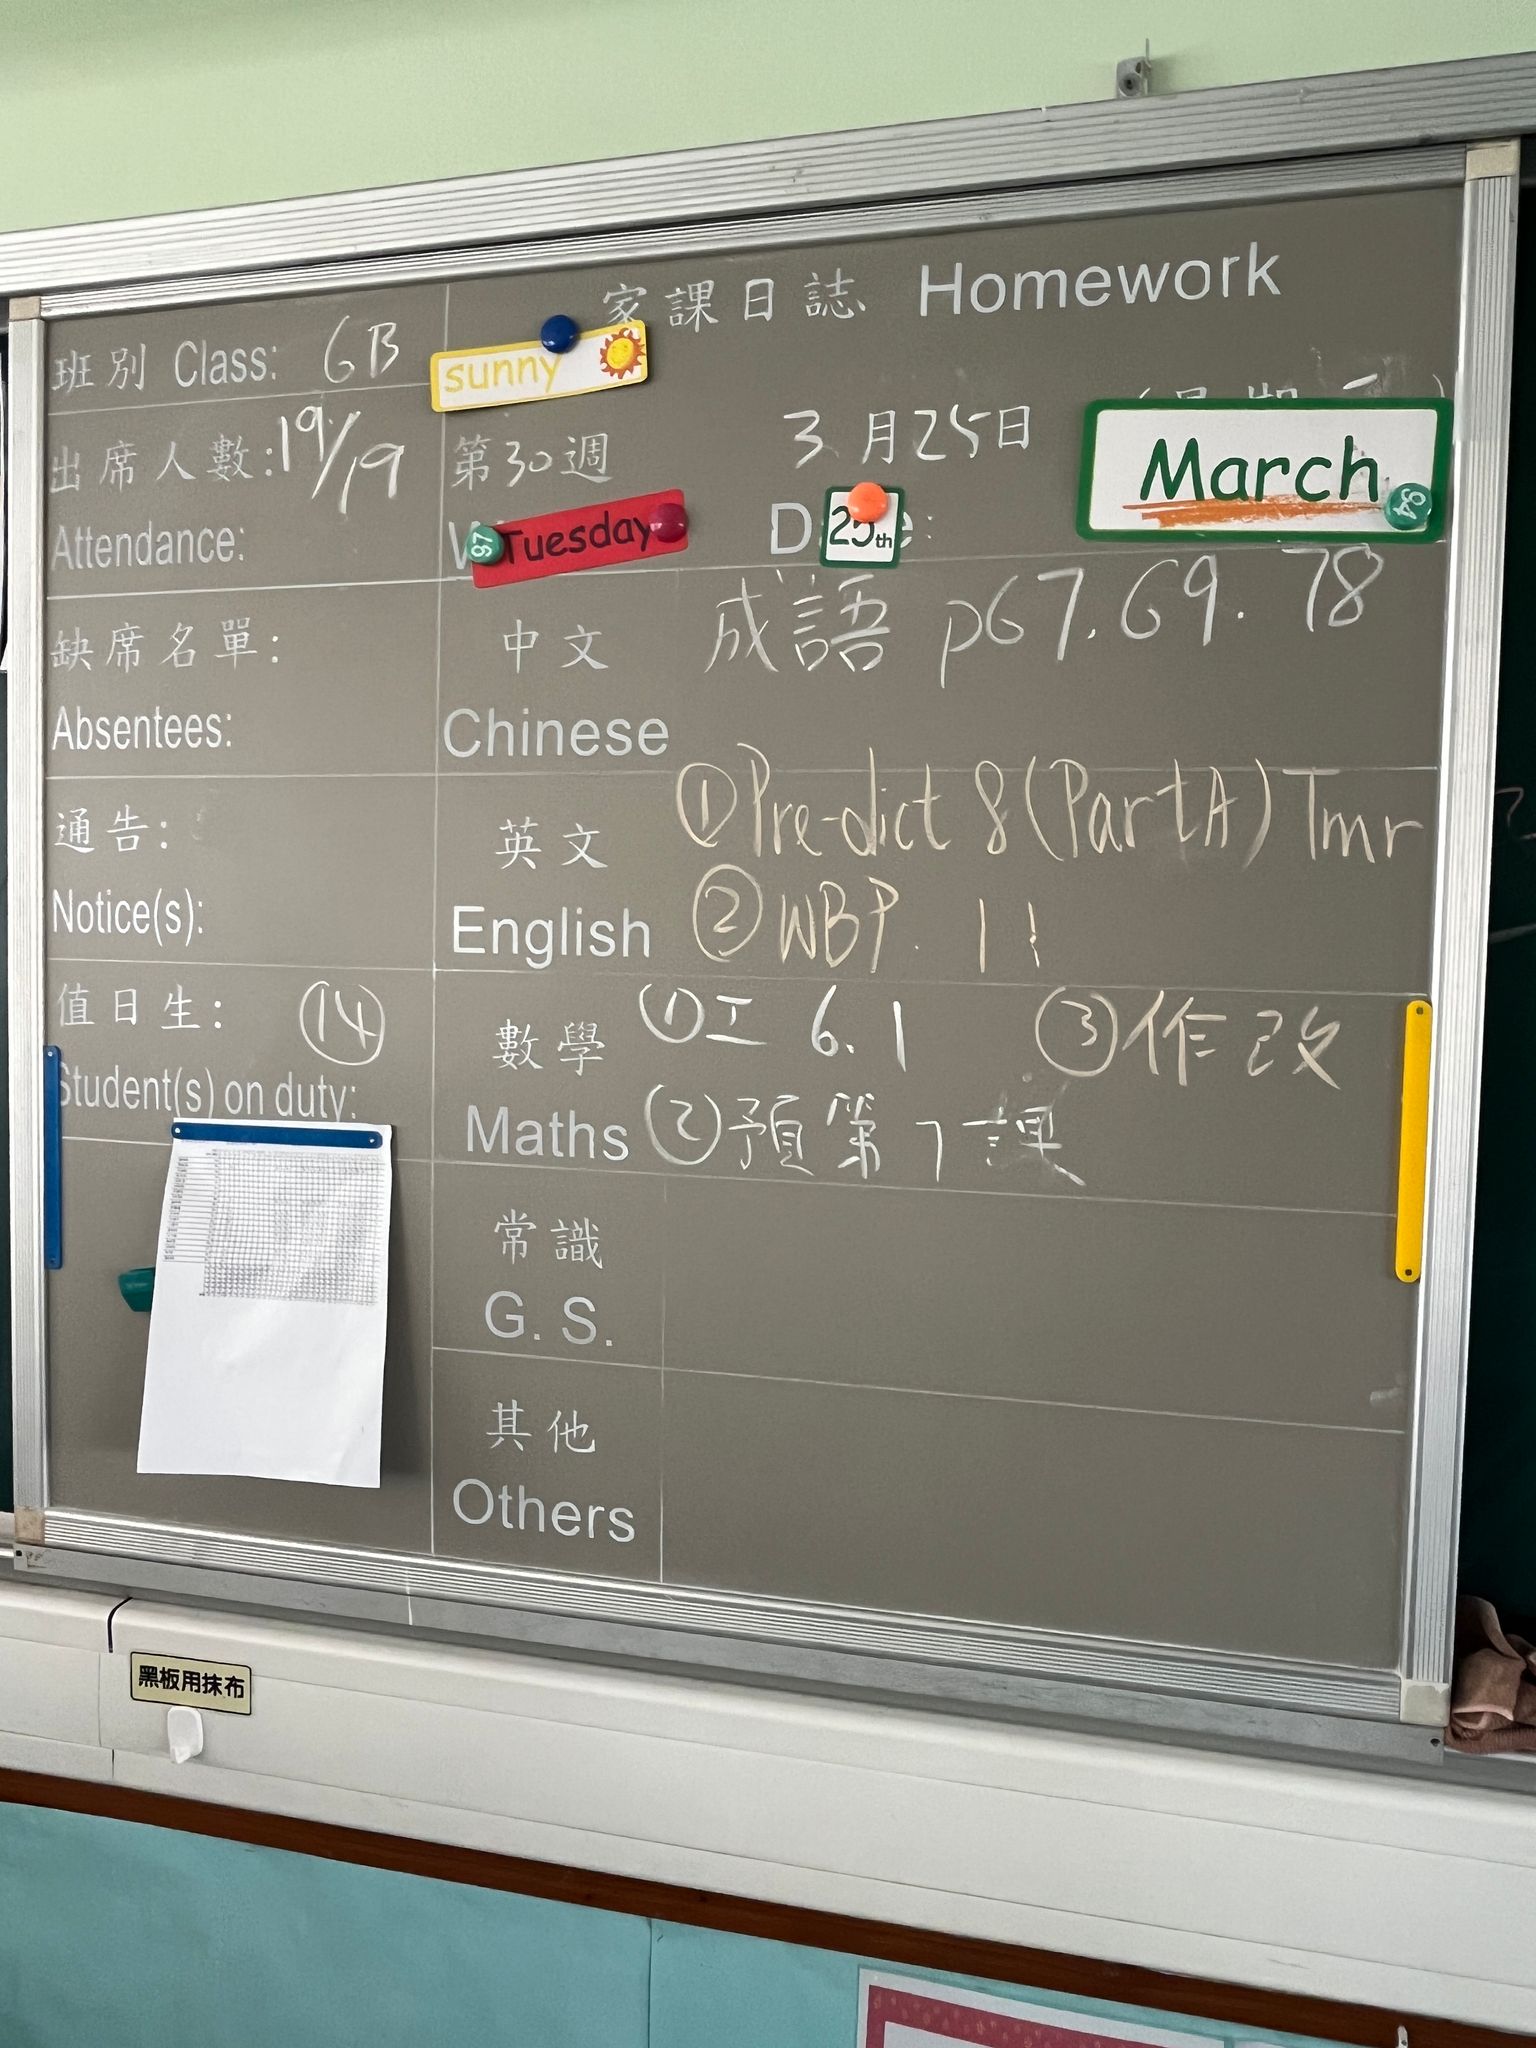 家課日誌 Homework
班別 Class: 6B
sunny
出席人數: 19/19
Attendance:
第30週
3月25日
March
94
97
Tuesday
25th
缺席名單:
Absentees:
中文
Chinese
成語 p67.69.78
通告:
Notice(s):
英文
English
①Pre-dict 8 (Part A) Tmr
② WBP. 11
值日生: ⑭
Student(s) on duty:
數學
Maths
①工 6.1 ③作改
②預第7課
常識
G. S.
其他
Others
黑板用抹布